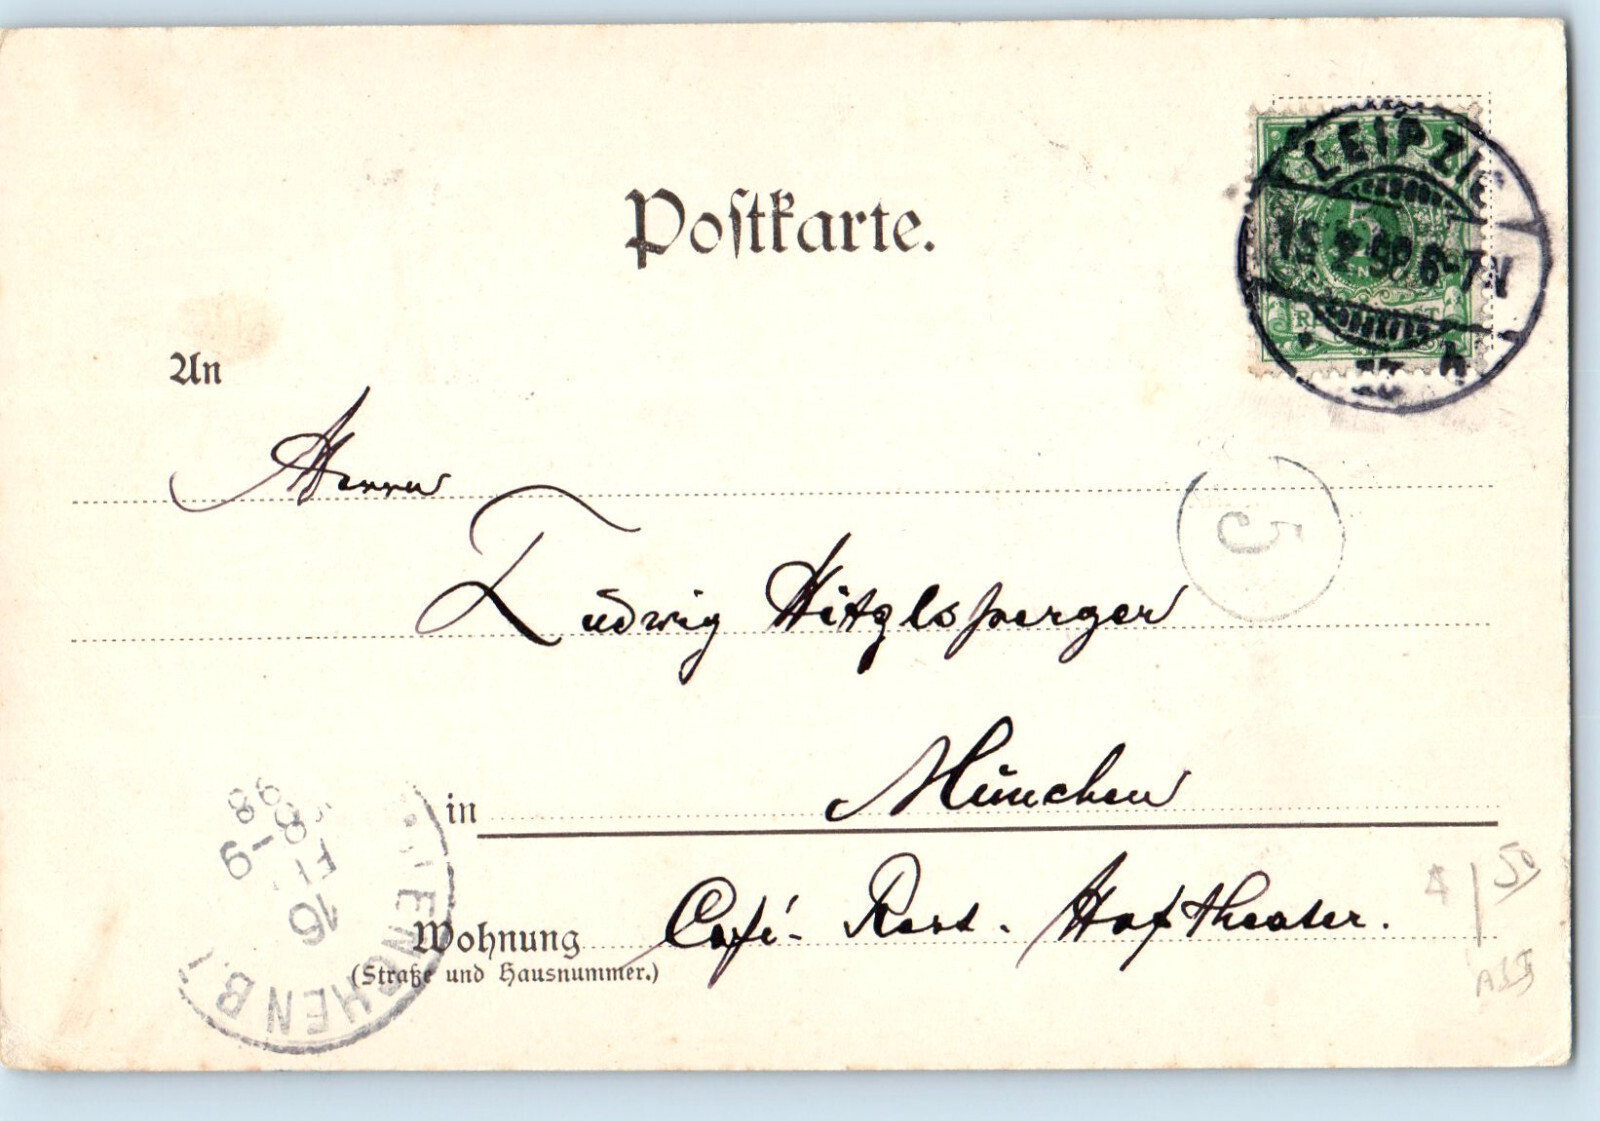 Postkarte.
LEIPZIG
15.2.98 6-7N
13 h
5
An
Herrn
5
Ludwig Hitzlsperger
in München
8-9
16
FEB
98
MUENCHEN B.1
Wohnung Café-Rest. Hoftheater.
(Straße und Hausnummer.)
50